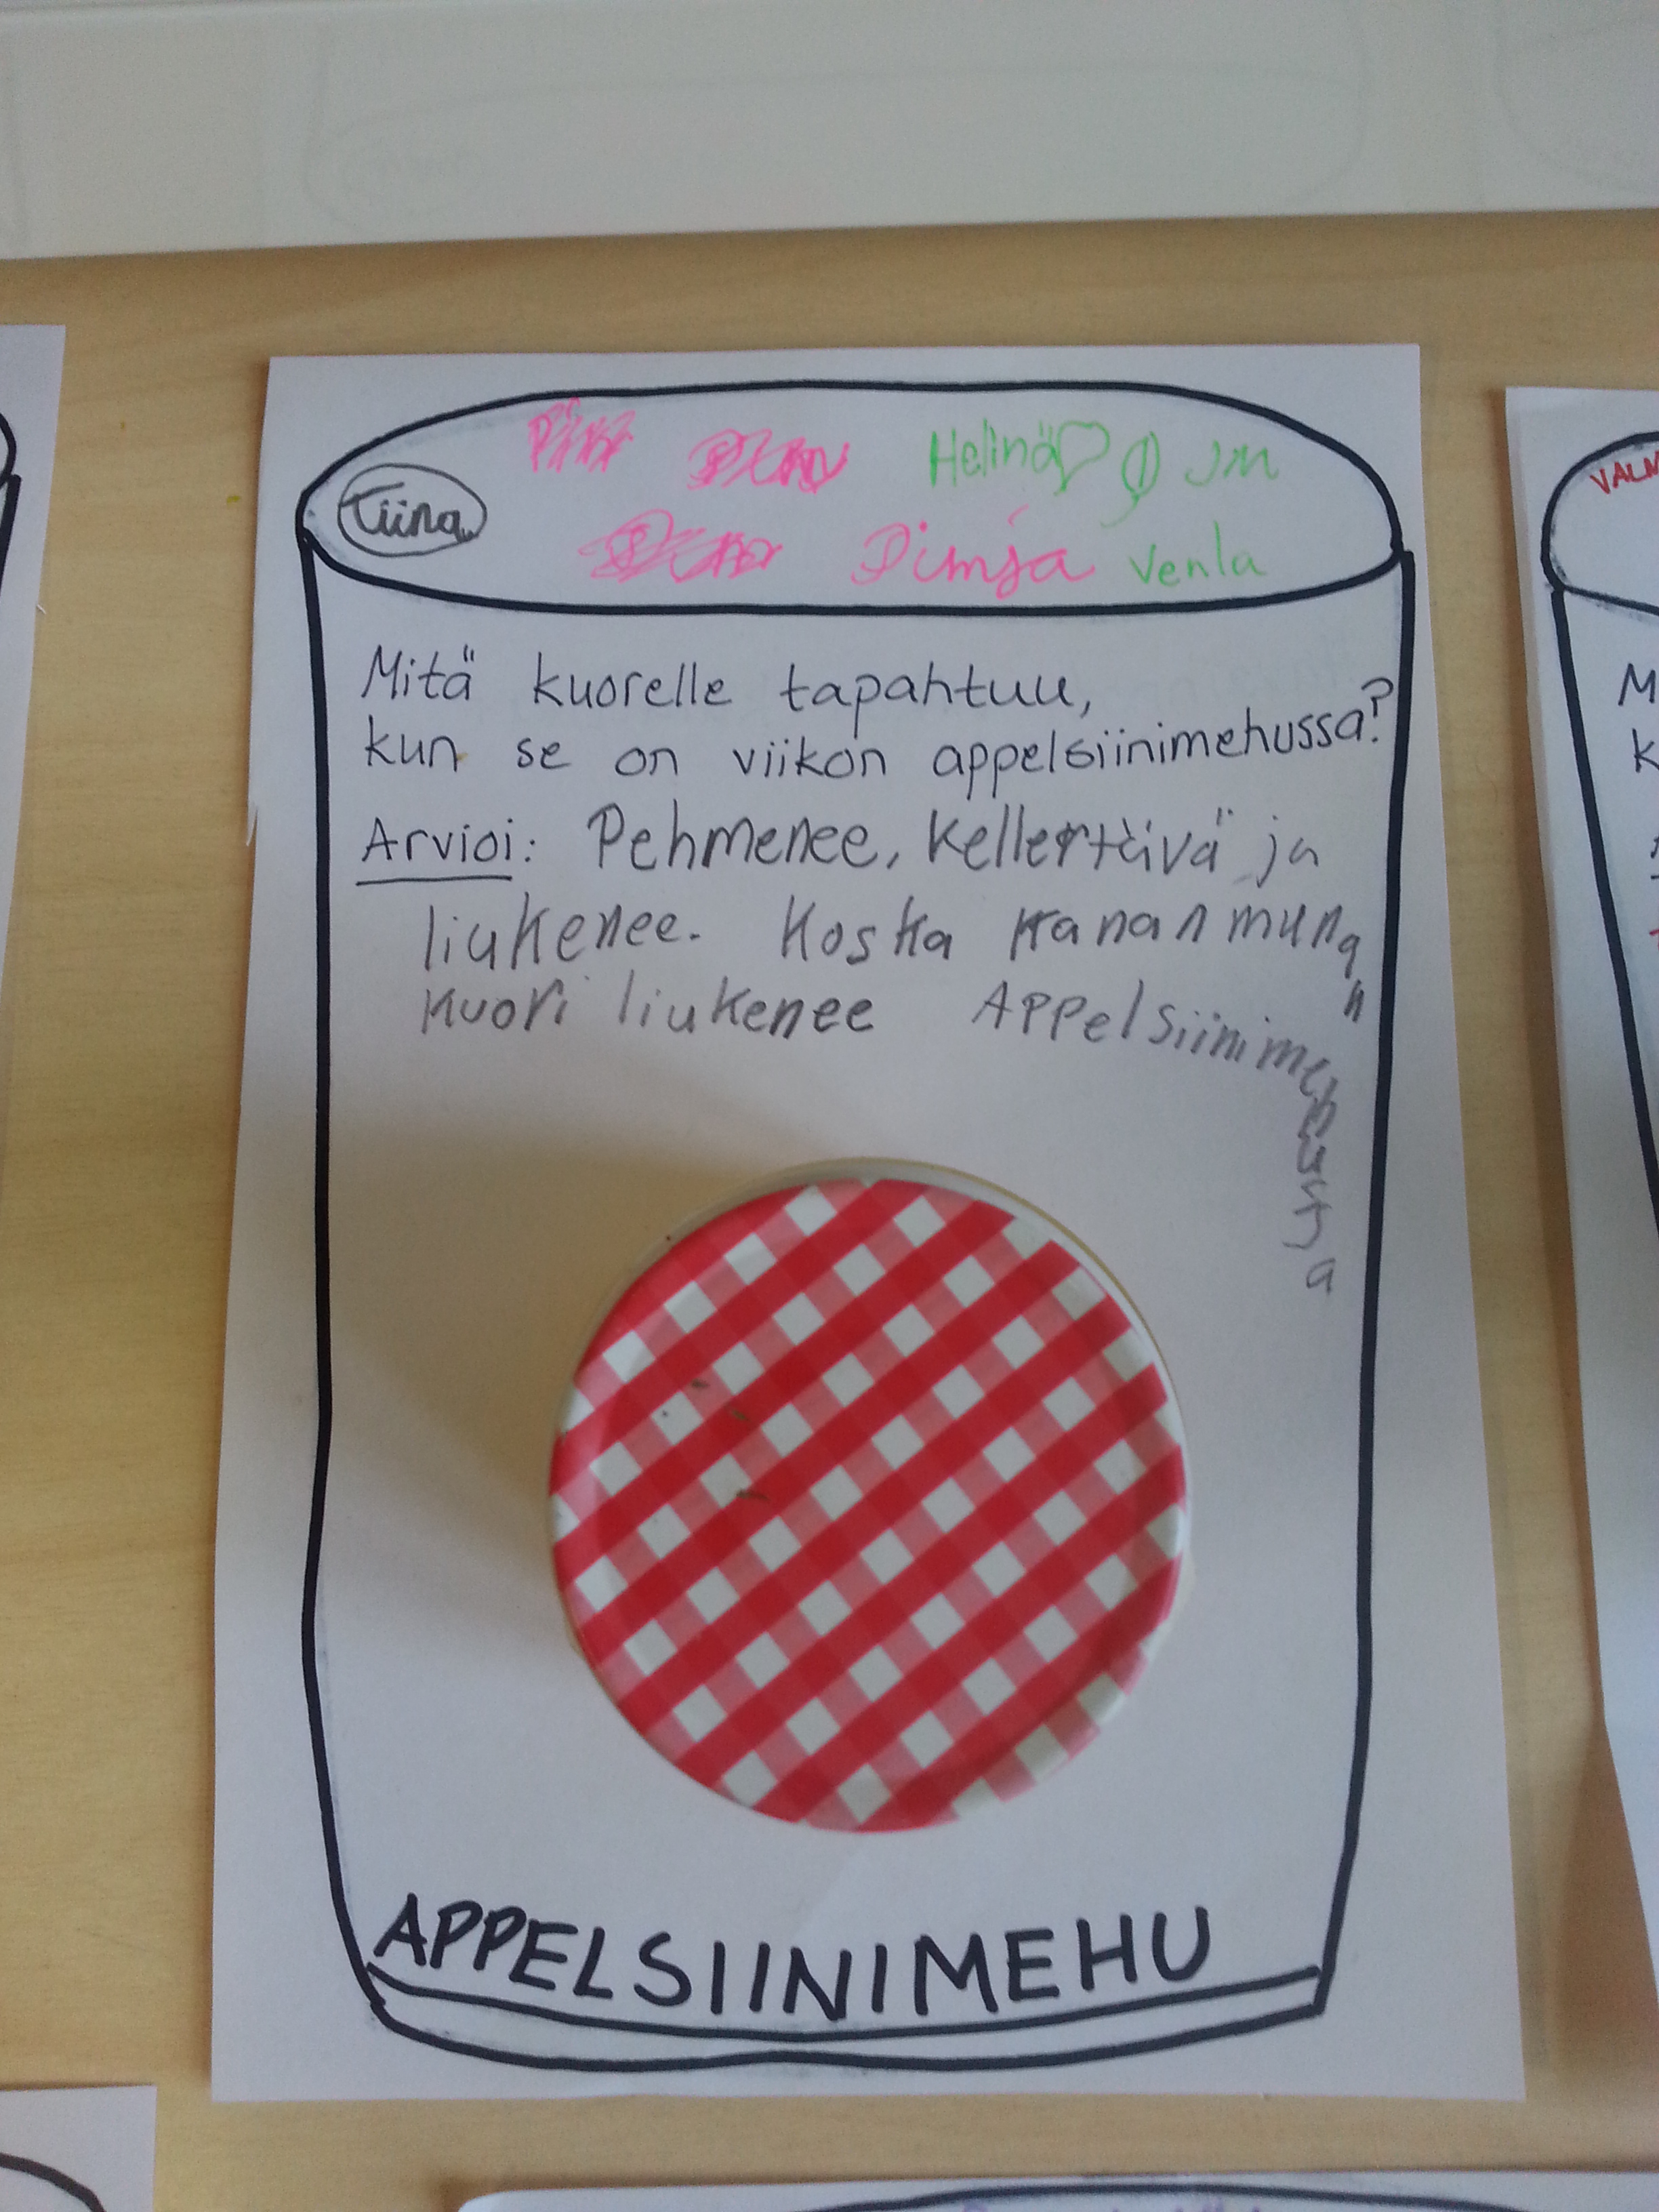 Helinä
Tiina
Venla
Mitä kuorelle tapahtuu,
kun se on viikon appelsiinimehussa?
Arvioi: Pehmenee, kellertävä ja
liukenee. Koska kananmunan
kuori liukenee Appelsiinimehussa
APPELSIINIMEHU
VALM
M
k